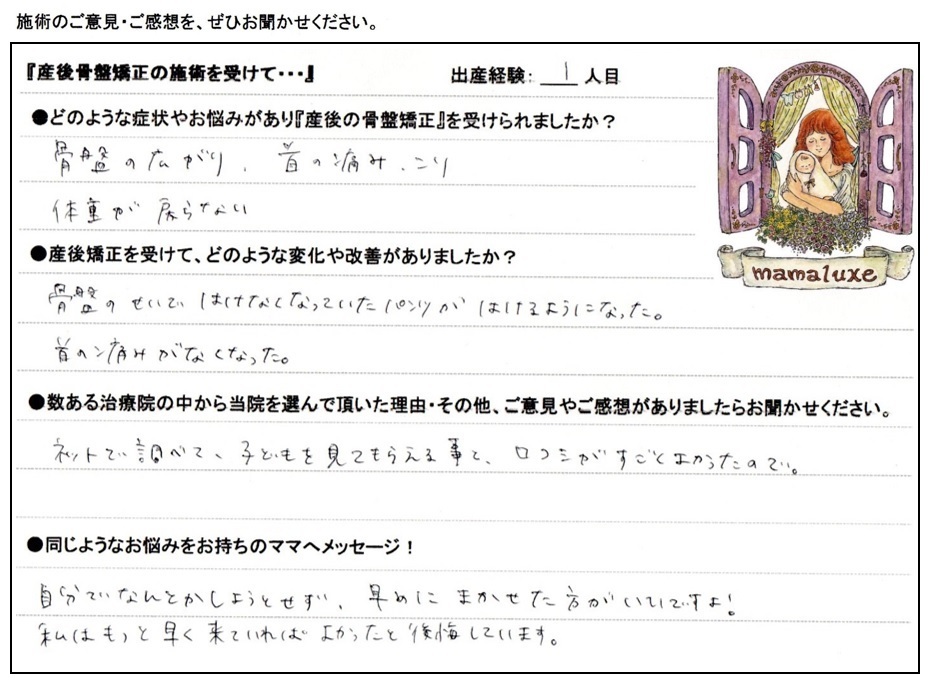 施術のご意見・ご感想を、ぜひお聞かせください。
『産後骨盤矯正の施術を受けて・・・』 出産経験: 1 人目
●どのような症状やお悩みがあり『産後の骨盤矯正』を受けられましたか?
骨盤の広がり、首の痛み、こり
体重が戻らない
mamaluxe
●産後矯正を受けて、どのような変化や改善がありましたか?
骨盤のせいで はけなくなっていたパンツが はけるようになった。
首の痛みがなくなった。
●数ある治療院の中から当院を選んで頂いた理由・その他、ご意見やご感想がありましたらお聞かせください。
ネットで調べて、子どもを見てもらえる事と、口コミがすごくよかったので。
●同じようなお悩みをお持ちのママへメッセージ!
自分でなんとかしようとせず、早めに まかせた方がいいですよ!
私はもっと早く来ていれば よかったと後悔しています。